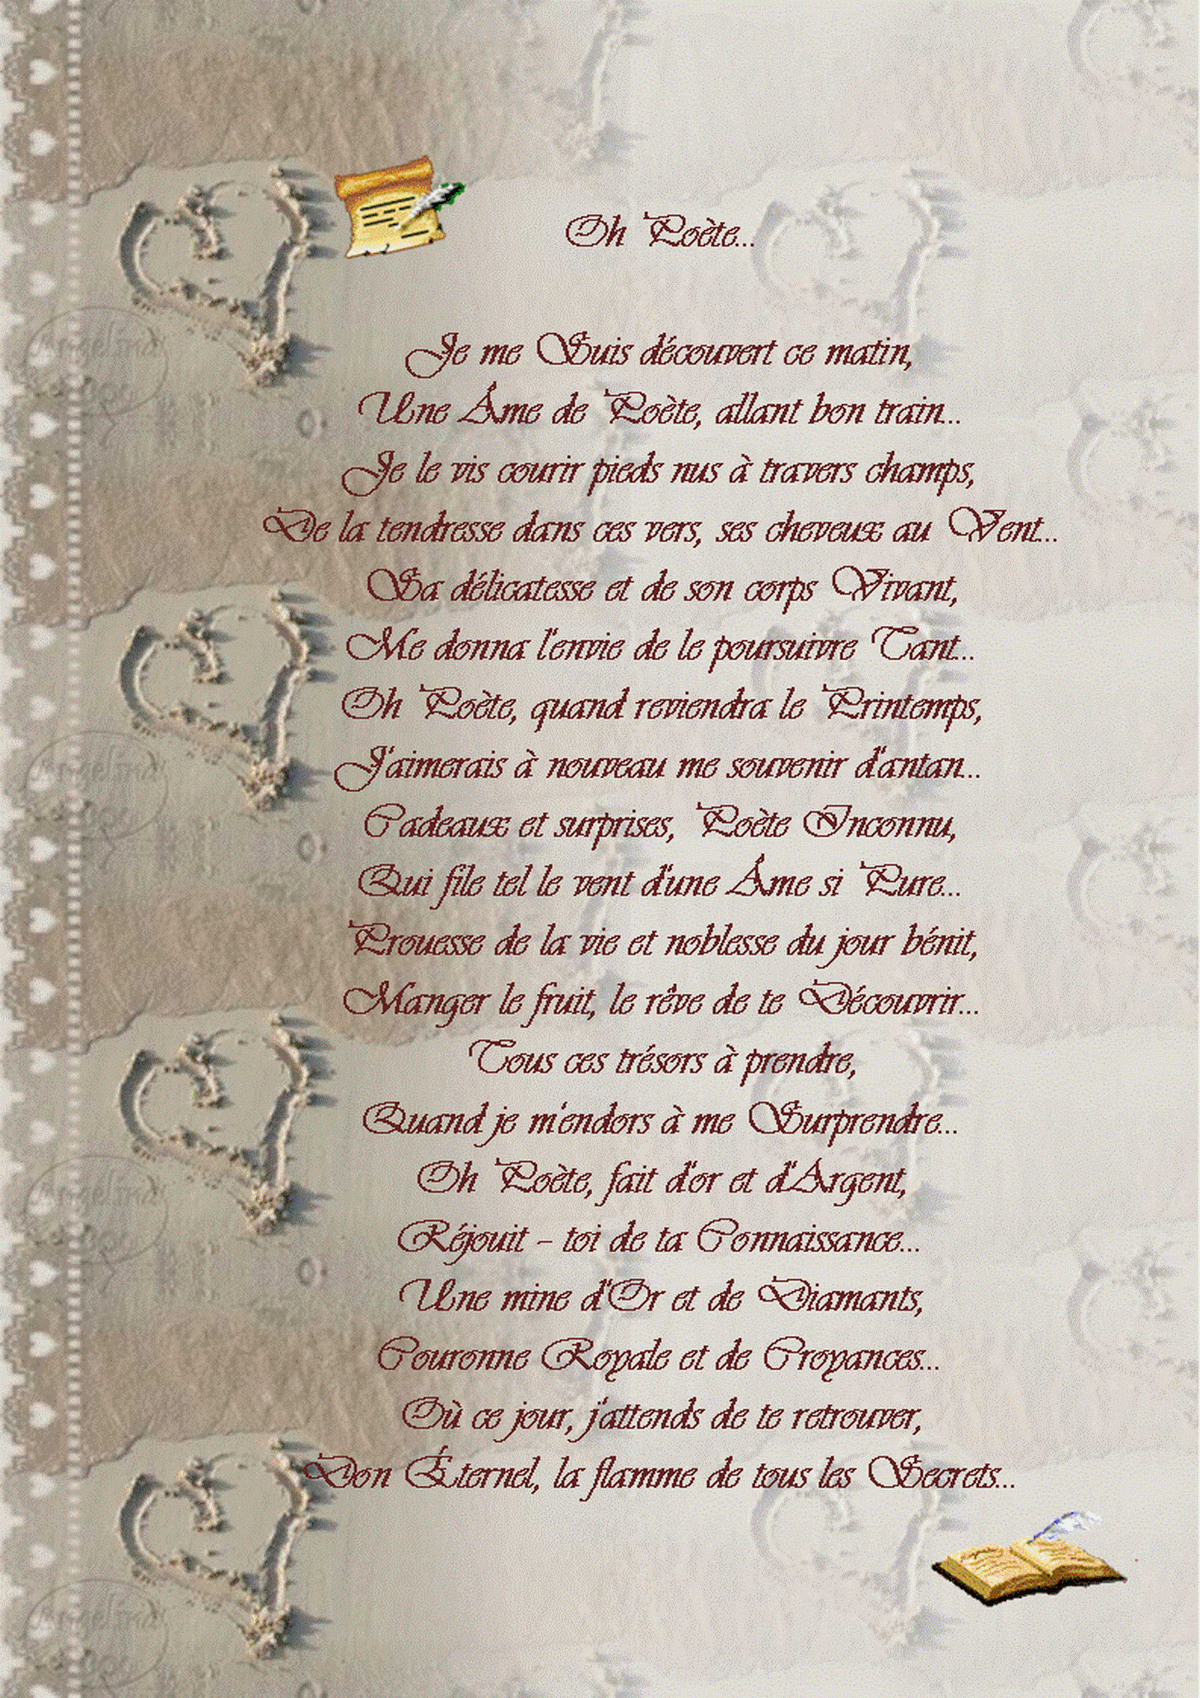 Oh Poète...
Je me Suis découvert ce matin,
Une Âme de Poète, allant bon train...
Je le vis courir pieds nus à travers champs,
De la tendresse dans ces vers, ses cheveux au Vent...
Sa délicatesse et de son corps Vivant,
Me donna l'envie de le poursuivre Tant...
Oh Poète, quand reviendra le Printemps,
J'aimerais à nouveau me souvenir d'antan...
Cadeaux et surprises, Poète Inconnu,
Qui file tel le vent d'une Âme si Pure...
Prouesse de la vie et noblesse du jour bénit,
Manger le fruit, le rêve de te Découvrir...
Tous ces trésors à prendre,
Quand je m'endors à me Surprendre...
Oh Poète, fait d'or et d'Argent,
Réjouit - toi de ta Connaissance...
Une mine d'Or et de Diamants,
Couronne Royale et de Croyances...
Où ce jour, j'attends de te retrouver,
Don Éternel, la flamme de tous les Secrets...
Angelina
Angelina
Angelina
Angelina